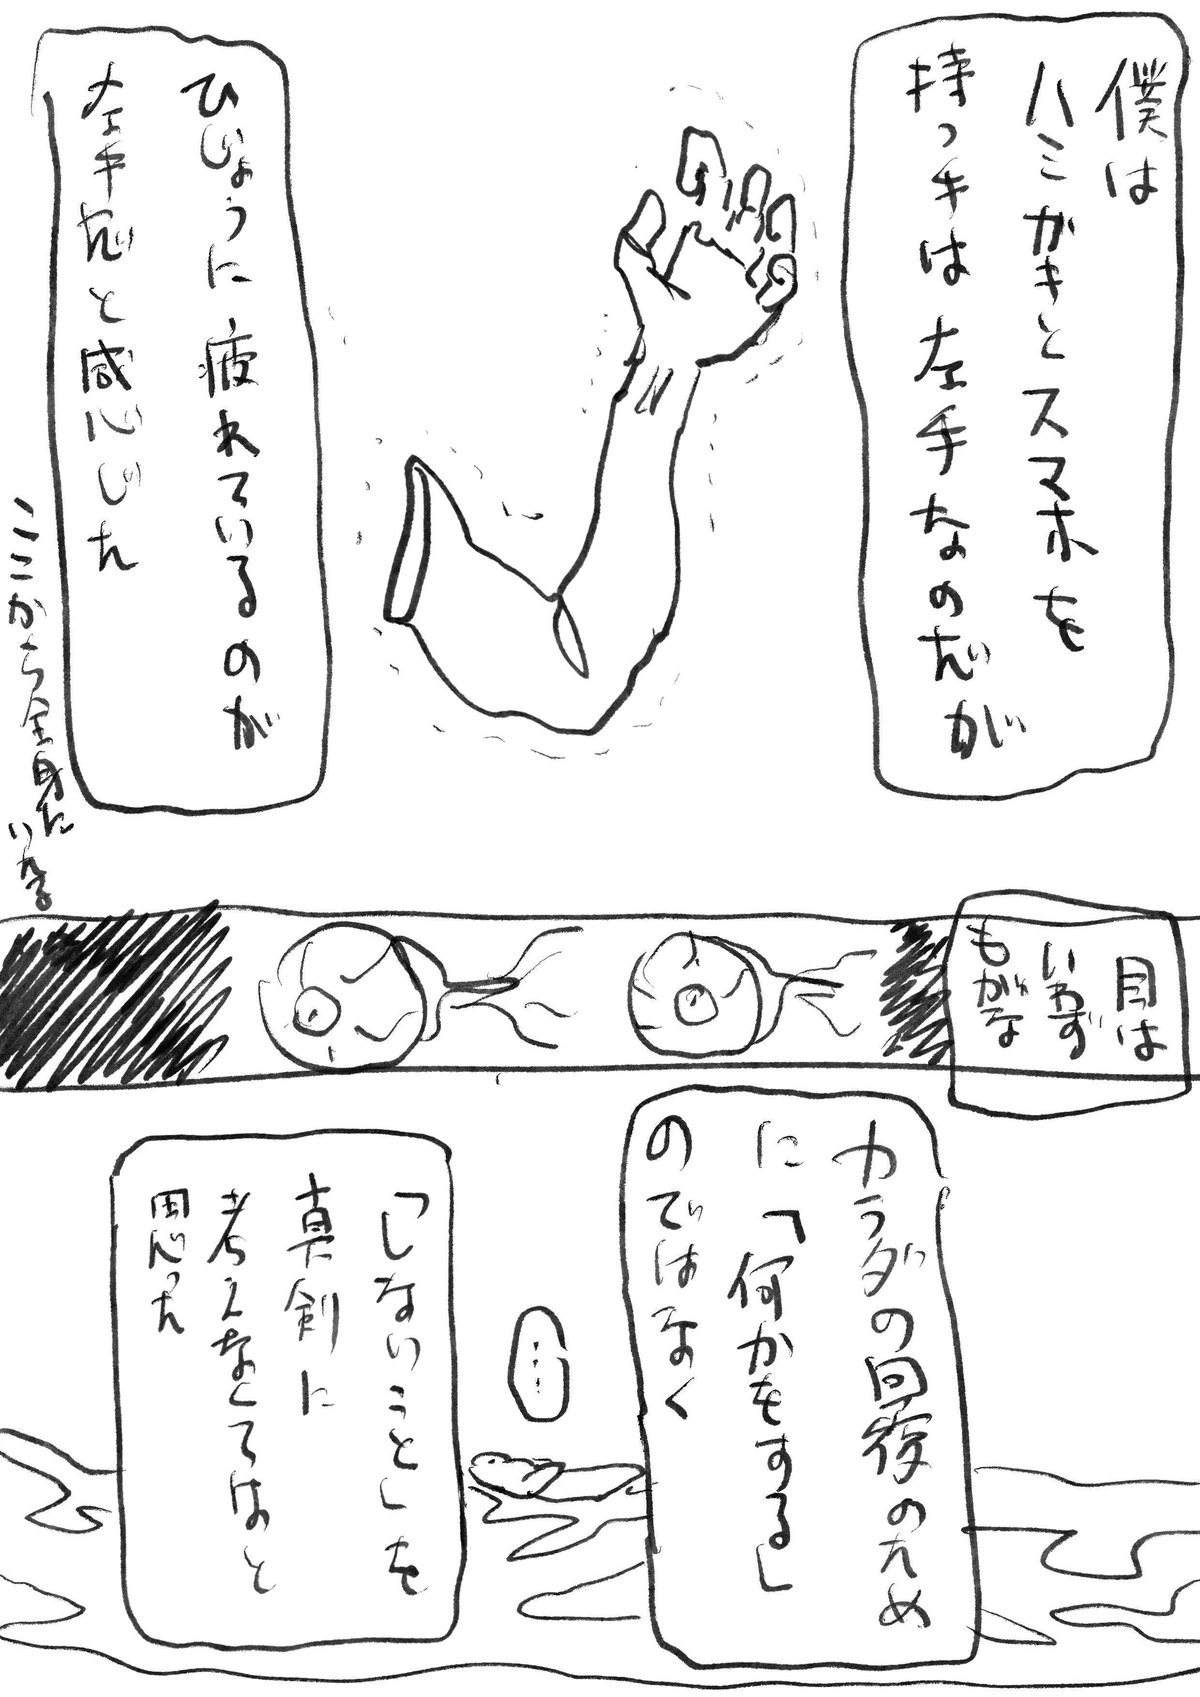 僕は
ハミガキとスマホを
持つ手は左手なのだが
ひじょうに疲れているのが
左手だと感じた
ここから全身に
いたる
目は
いわず
もがな
カラダの回復のため
に「何かをする」
のではなく
「しないこと」を
真剣に
考えなくてはと
思った
…